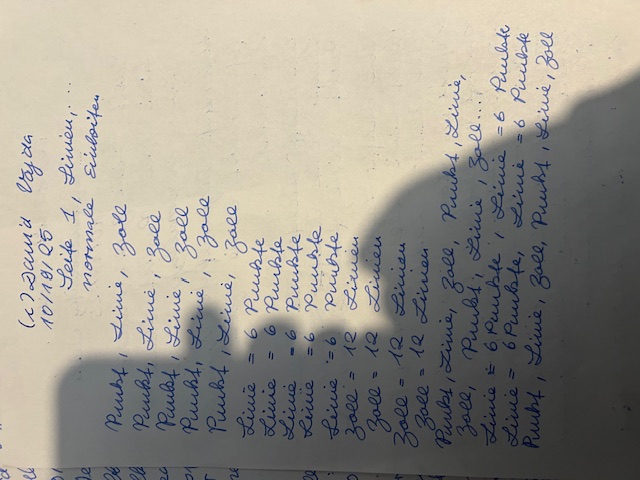 (c) David Vajda
10/19/25
Seite 1, Linien, ...
normale Einheiten
Punkt, Linie, Zoll
Punkt, Linie, Zoll
Punkt, Linie, Zoll
Punkt, Linie, Zoll
Punkt, Linie, Zoll
Linie = 6 Punkte
Linie = 6 Punkte
Linie = 6 Punkte
Linie = 6 Punkte
Linie = 6 Punkte
Zoll = 12 Linien
Zoll = 12 Linien
Zoll = 12 Linien
Zoll = 12 Linien
Punkt, Linie, Zoll, Punkt, Linie,
Zoll, Punkt, Linie, Zoll...
Linie = 6 Punkte, Linie = 6 Punkte
Linie = 6 Punkte, Linie = 6 Punkte
Punkt, Linie, Zoll, Punkt, Linie, Zoll